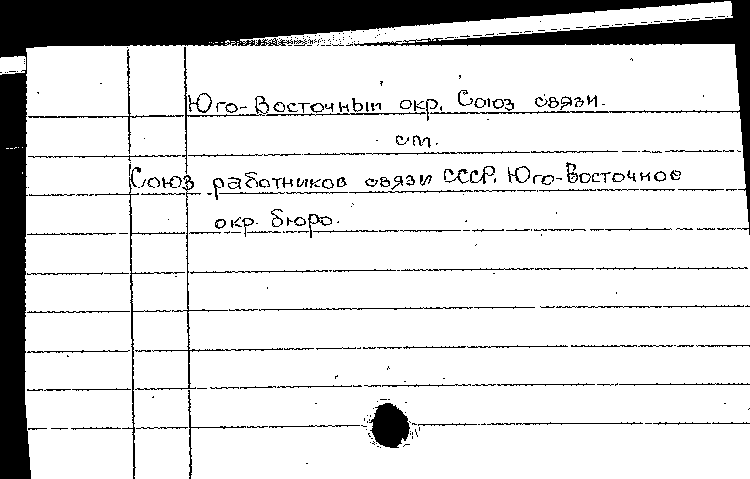 Юго-Восточный окр. Союз связи.
см.
Союз работников связи СССР. Юго-Восточное
окр. бюро.